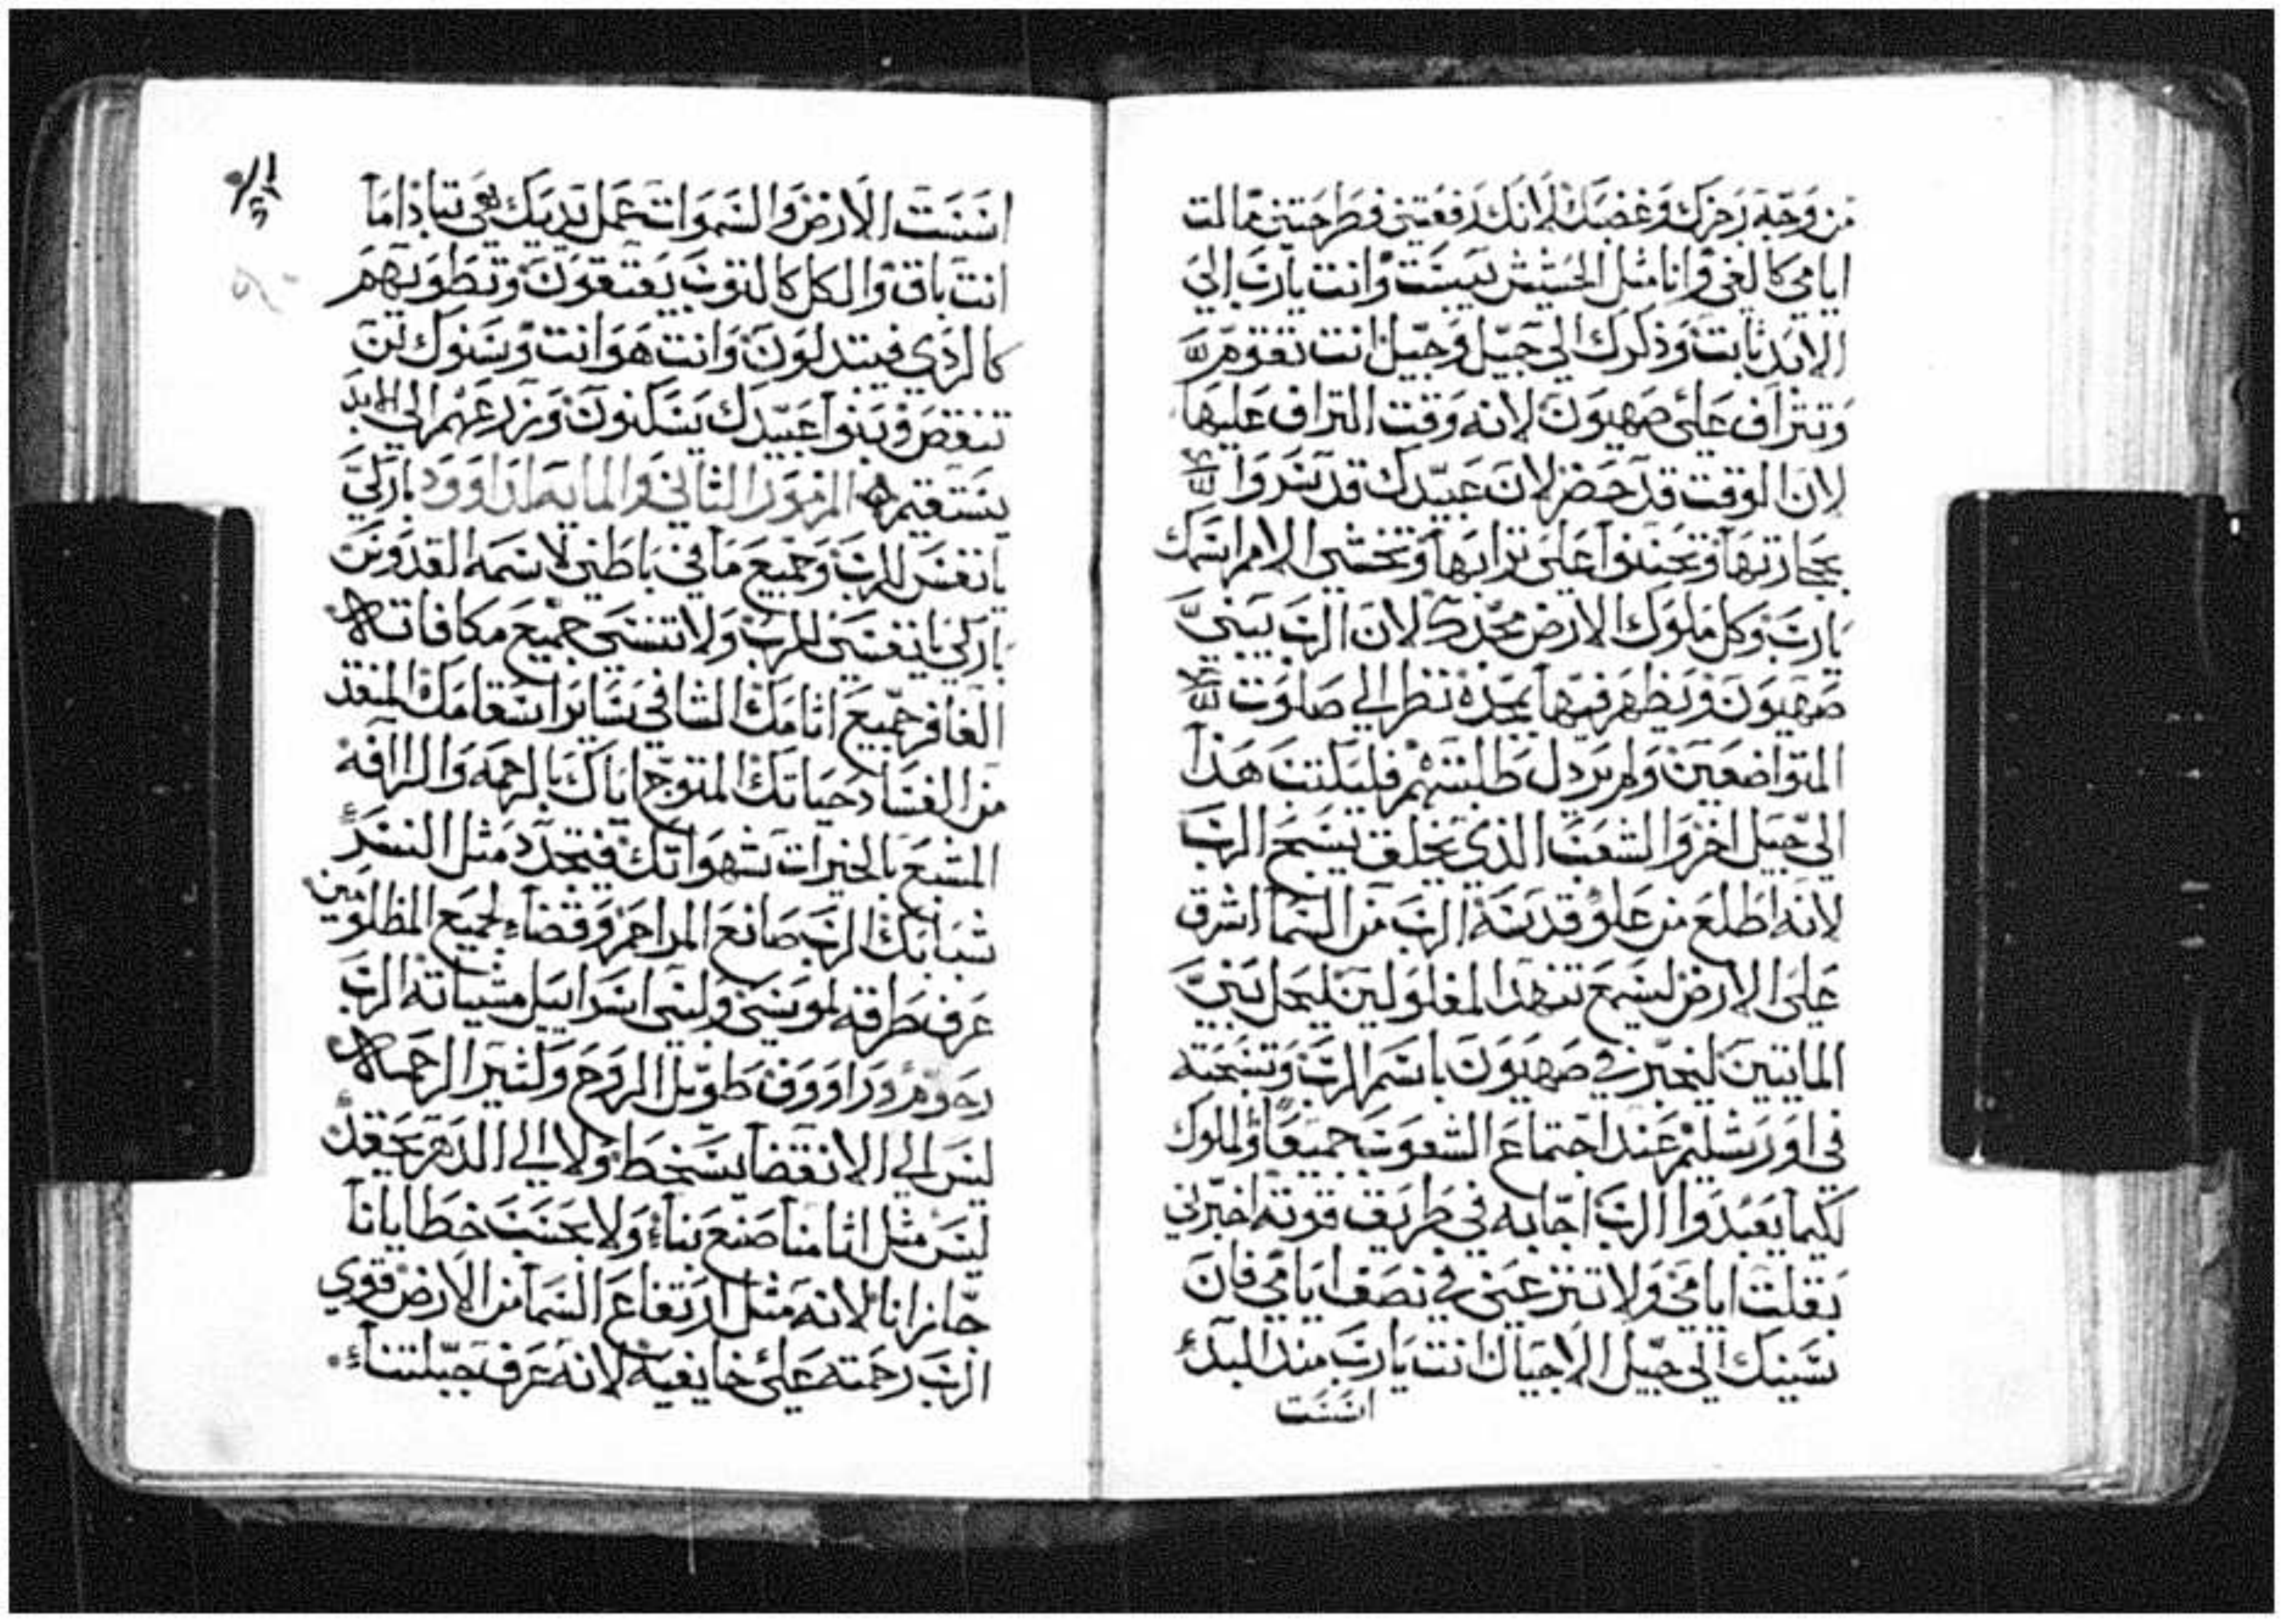 من وجه رجزك وغضبك لانك رفعتني فطرحتني مالت
ايامي كالفي وانا مثل الحشيش يبست وانت يارب الي
الابد ثابت وذكرك الي جيل وجيل انت تقوم
وتتراف علي صهيون لانه وقت التراف عليها
لان الوقت قد حضر لان عبيدك قد سروا
بحجارتها وتحننوا علي ترابها وتخشي الامم اسمك
يارب وكل ملوك الارض مجدك لان الرب يبني
صهيون ويظهر فيها بمجده نظر الي صلوت
المتواضعين ولم يردل طلبتهم فليكتب هذا
الي جيل اخر والشعب الذي يخلق يسبح الرب
لانه اطلع من علو قدسه الرب من السما اشرق
علي الارض ليسمع تنهد المغلولين ليحل بني
المايتين ليخبر في صهيون باسم الرب وتسبحته
في اورشليم عند اجتماع الشعوب جميعا والملوك
لكيما يعبدوا الرب اجابه في طريق قوته اخبرني
بقلت ايامي ولا تنزعني في نصف ايامي فان
سنينك الي جيل الاجيال انت يارب مند البدء
اسست
اسست الارض والسموات عمل يديك هي تباد اما
انت باق والكل كالتوب يعتقون وتطويهم
كالردي فيتبدلون وانت هو انت وسنوك لن
تنقص وبنوا عبيدك يسكنون وزرعهم الي الابد
يستقيم المزمور الثاني والمايه لداوود باركي
يانفس للرب وجميع ما في باطني لاسمه القدوس
باركي يانفسي للرب ولا تنسي جميع مكافاته
الغافر جميع اثامك الشافي ساير اسقامك المنقذ
من الفساد حياتك المتوج اياك بالرحمه والراافه
المشبع بالخيرات شهواتك فيتجدد مثل النسر
شبابك الرب صانع المراحم وقضاء لجميع المظلومين
عرف طرقه لموسي ولبني اسراييل مشياته الرب
رحوم وراووف طويل الروح وكثير الرحمه
ليس الي الانقضا يسخط ولا الي الدهر يحقد
ليس مثل اثامنا صنع بناء ولا بحسب خطايانا
جازانا لانه مثل ارتفاع السما من الارض قوي
الرب رحمته علي خايفيه لانه عرف جبلتناء